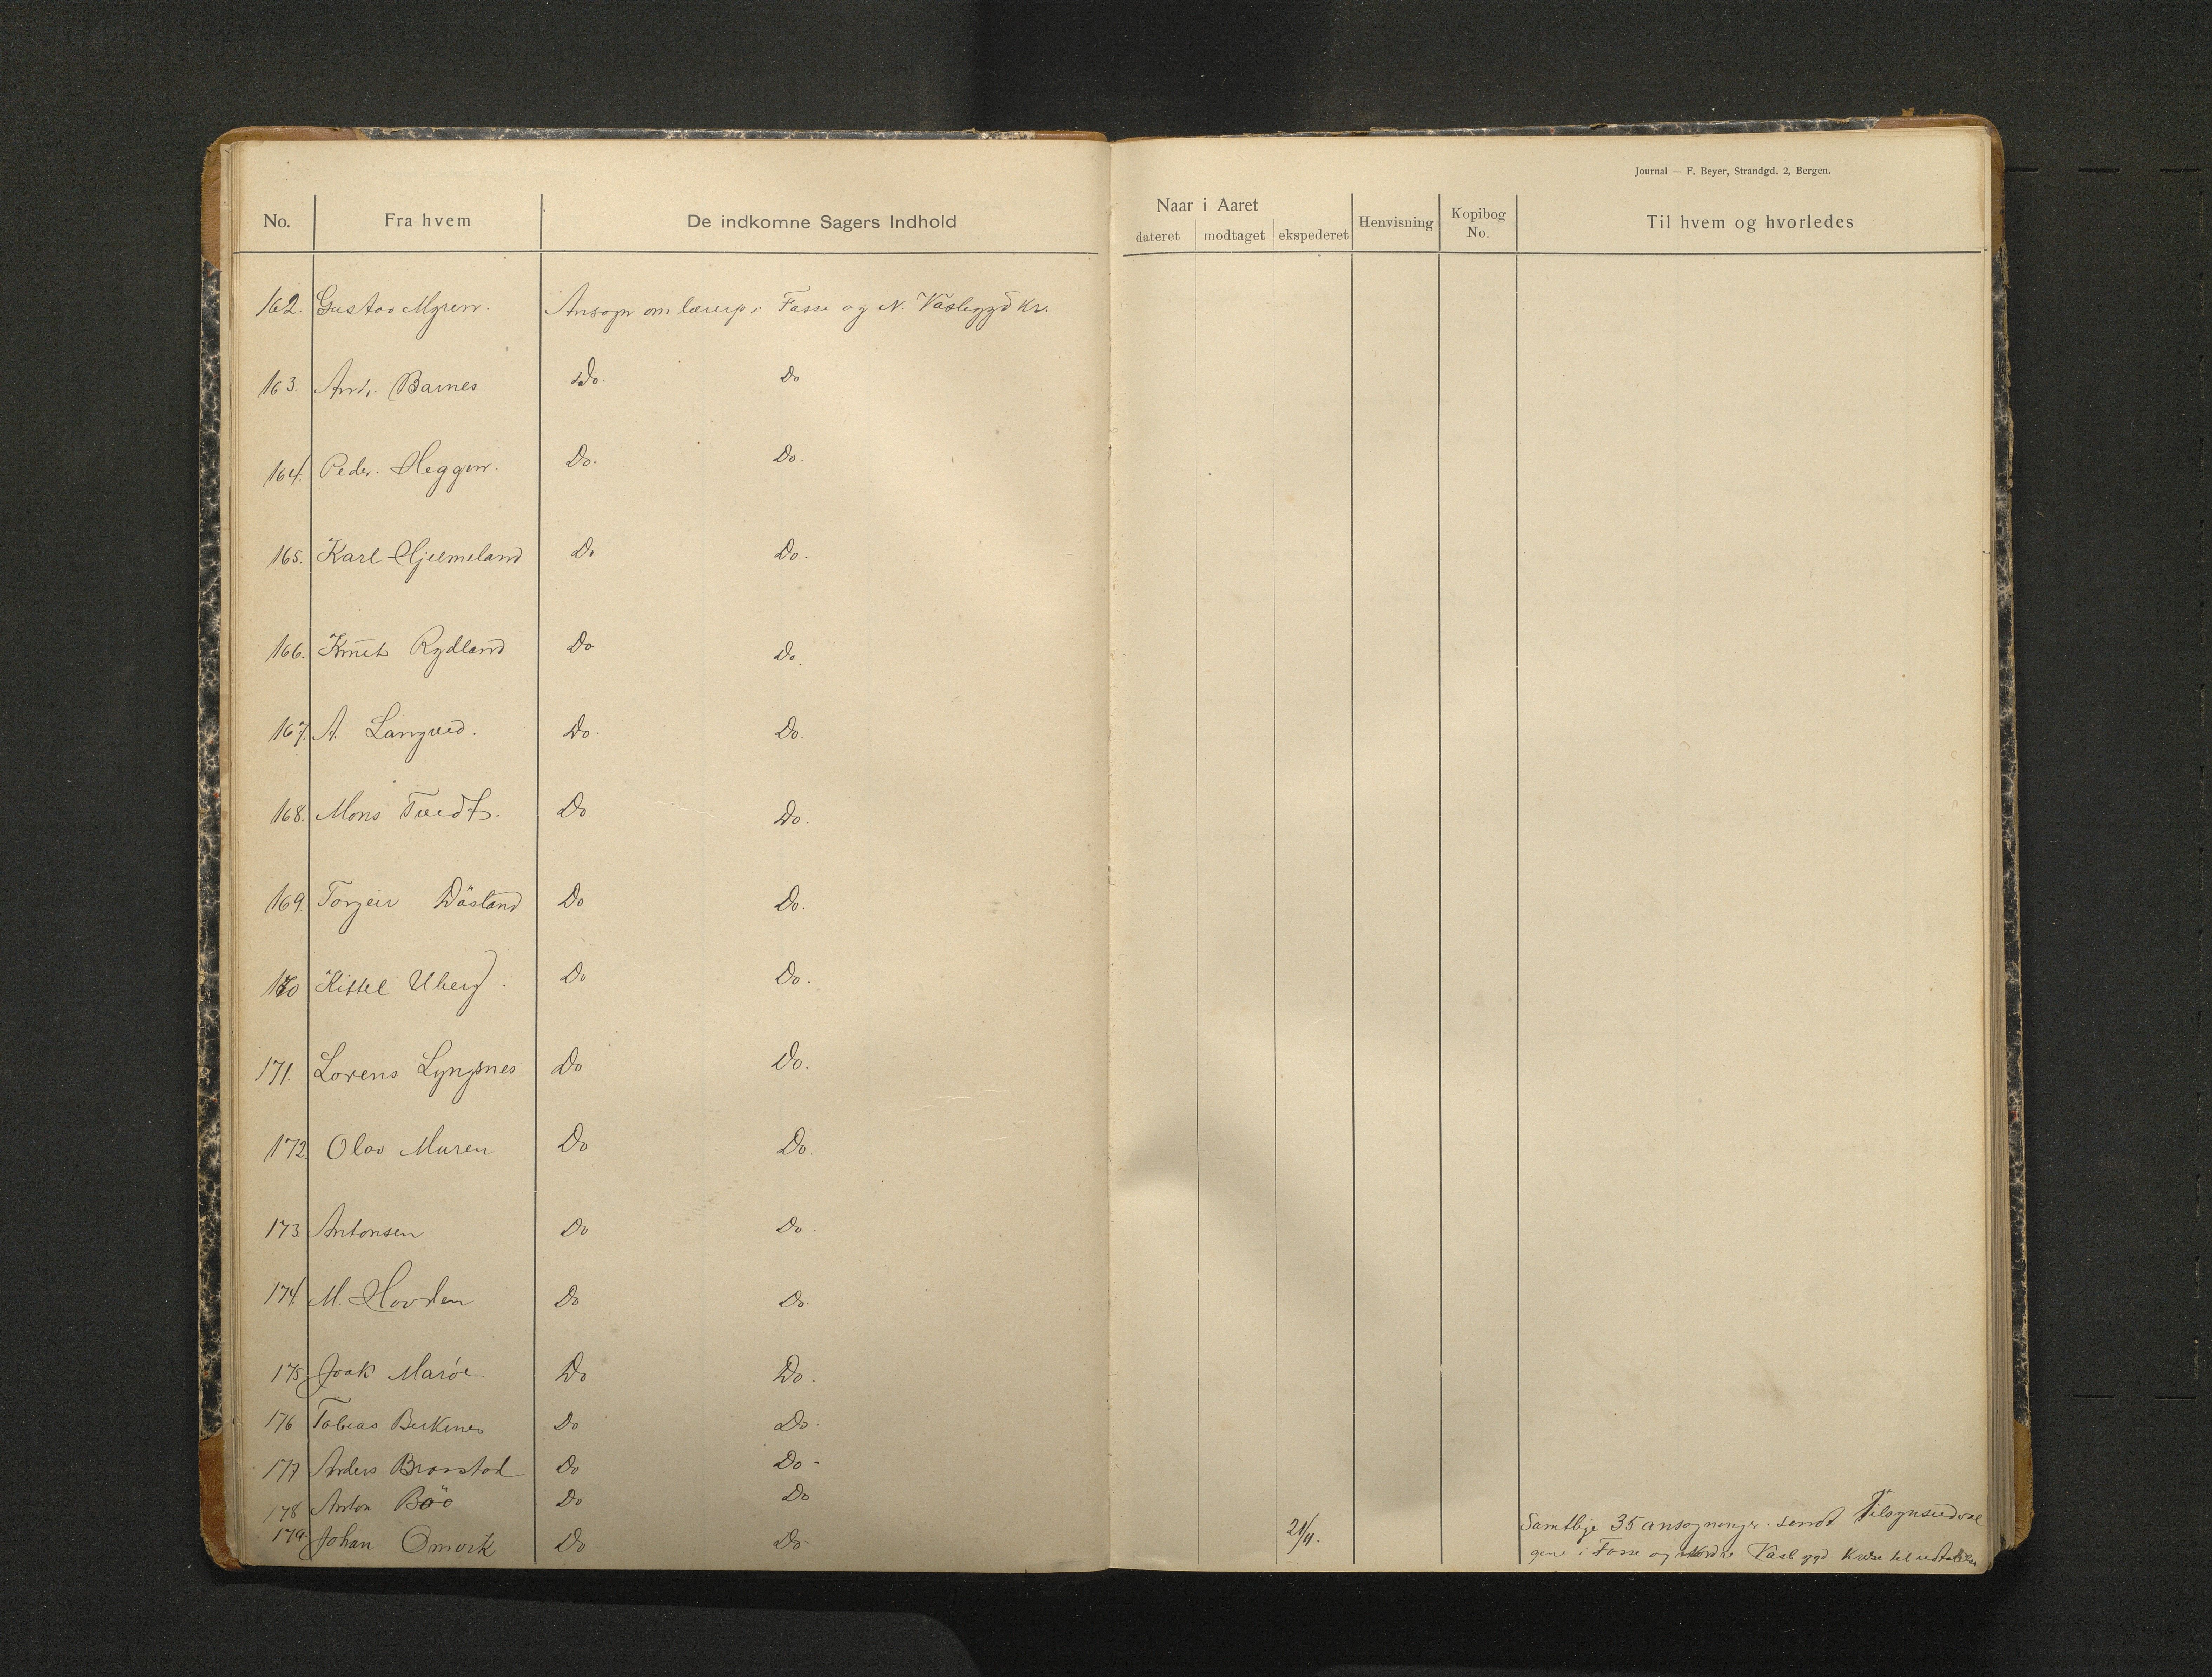 Journal — F. Beyer, Strandgd. 2, Bergen.
No. Fra hvem De indkomne Sagers Indhold Naar i Aaret Henvisning Kopibog No. Til hvem og hvorledes
dateret modtaget ekspederet
162. Gustav Myren. Ansøgn om lærerp. i Fasse og N. Vasbygd Kr.
163. Andr. Barnes Do. Do
164. Peder Heggen. Do. Do.
165. Karl Hjelmeland Do Do.
166. Knut Rydland Do Do.
167. A. Langved. Do. Do.
168. Mons Tvedt. Do Do.
169. Torgeir Däsland Do Do.
170 Kittel Uberg. Do Do.
171. Lorens Lyngsnes Do Do.
172. Olav Muren Do Do.
173 Antonsen Do Do.
174. M. Hovden Do Do.
175 Joak Marøe Do Do.
176 Tobias Birkenes Do Do.
177 Anders Do Do-
178 Anton Böö Do Do
179. Johan Omvik Do Do 21/11. Samtlige 35 ansøgninger sendt Tilsynsudval
gene i Fosse og Nordre Vasbygd Kredse til udtalelse